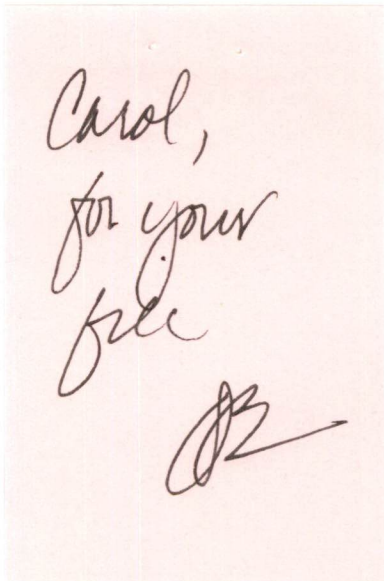 Carol,
for your
free
JB